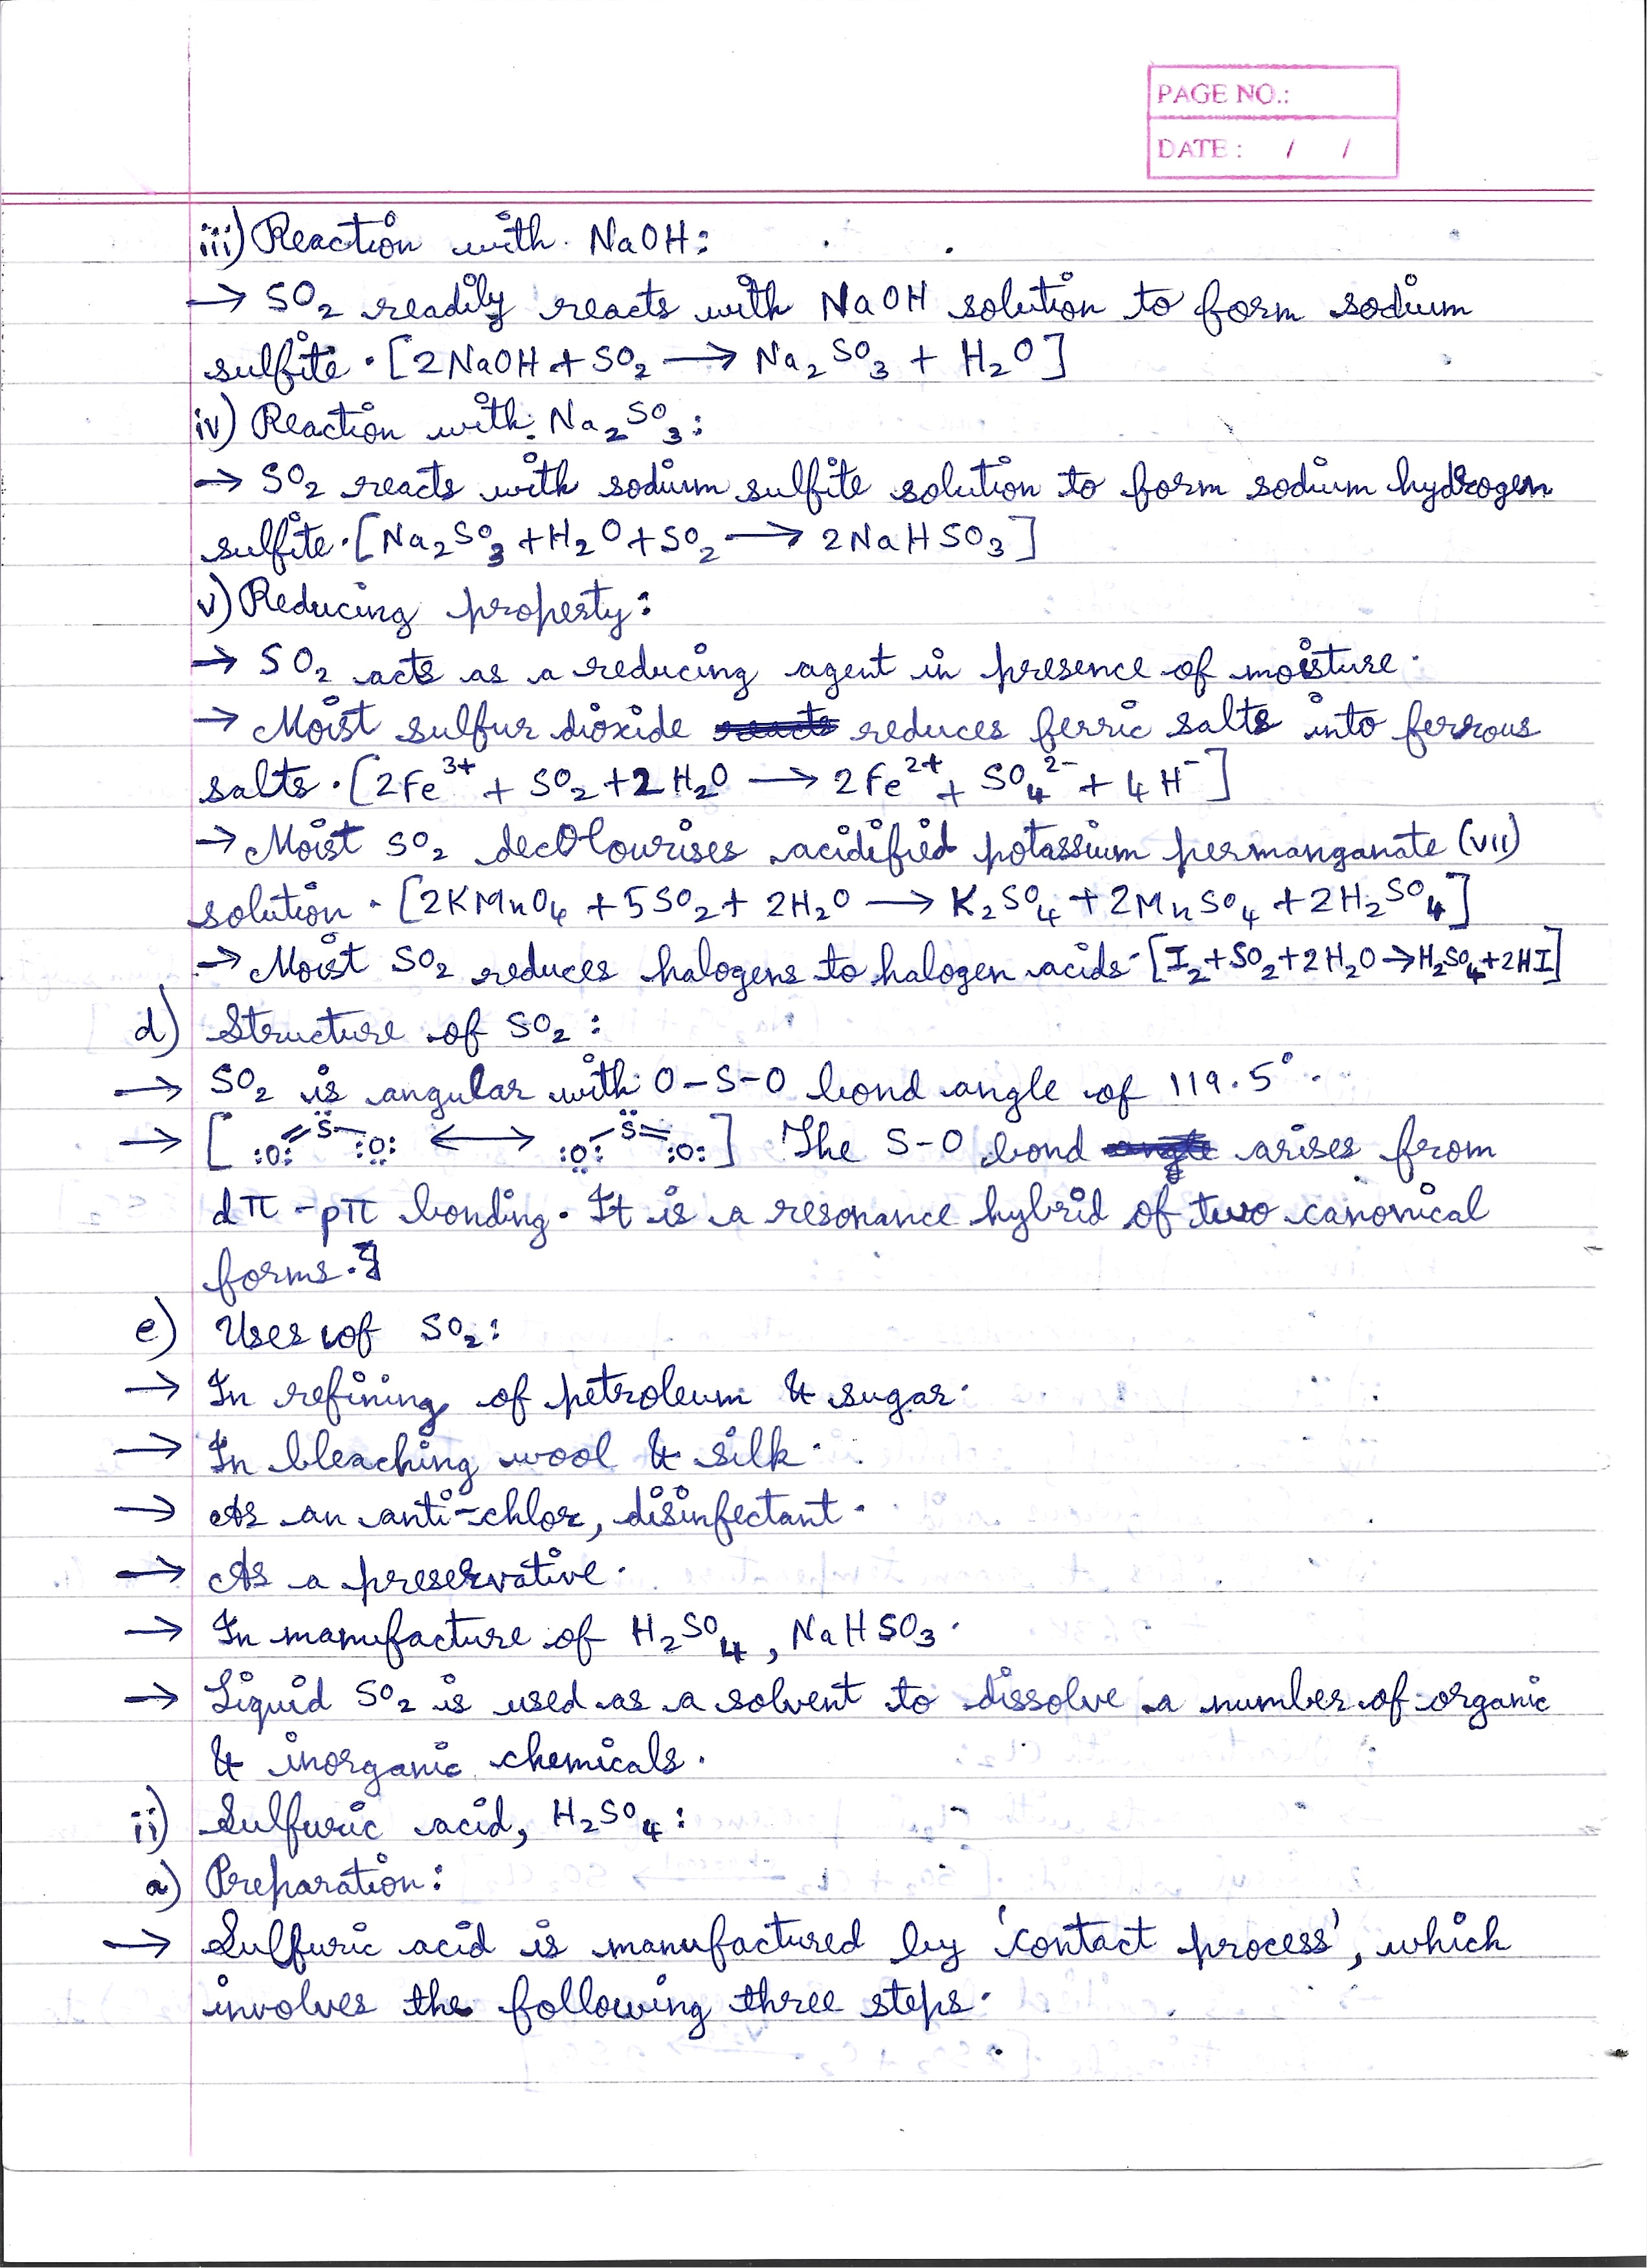 PAGE NO.:
DATE : / /
iii) Reaction with NaOH:
→ SO₂ readily reacts with NaOH solution to form sodium
sulfite. [2NaOH + SO₂ → Na₂SO₃ + H₂O]
iv) Reaction with Na₂SO₃:
→ SO₂ reacts with sodium sulfite solution to form sodium hydrogen
sulfite. [Na₂SO₃ + H₂O + SO₂ → 2NaHSO₃]
v) Reducing property:
→ SO₂ acts as a reducing agent in presence of moisture.
→ Moist sulfur dioxide reduces ferric salts into ferrous
salts. [2Fe³⁺ + SO₂ + 2H₂O → 2Fe²⁺ + SO₄²⁻ + 4H⁻]
→ Moist SO₂ decolourises acidified potassium permanganate (VII)
solution. [2KMnO₄ + 5SO₂ + 2H₂O → K₂SO₄ + 2MnSO₄ + 2H₂SO₄]
→ Moist SO₂ reduces halogens to halogen acids. [I₂ + SO₂ + 2H₂O → H₂SO₄ + 2HI]
d) Structure of SO₂:
→ SO₂ is angular with O-S-O bond angle of 119.5°.
→ [:O: S :O: ⟷ :O: S :O:] The S-O bond arises from
dπ-pπ bonding. It is a resonance hybrid of two canonical
forms.]
e) Uses of SO₂:
→ In refining of petroleum & sugar.
→ In bleaching wool & silk.
→ As an anti-chlor, disinfectant.
→ As a preservative.
→ In manufacture of H₂SO₄, NaHSO₃.
→ Liquid SO₂ is used as a solvent to dissolve a number of organic
& inorganic chemicals.
ii) Sulfuric acid, H₂SO₄:
a) Preparation:
→ Sulfuric acid is manufactured by 'contact process', which
involves the following three steps.